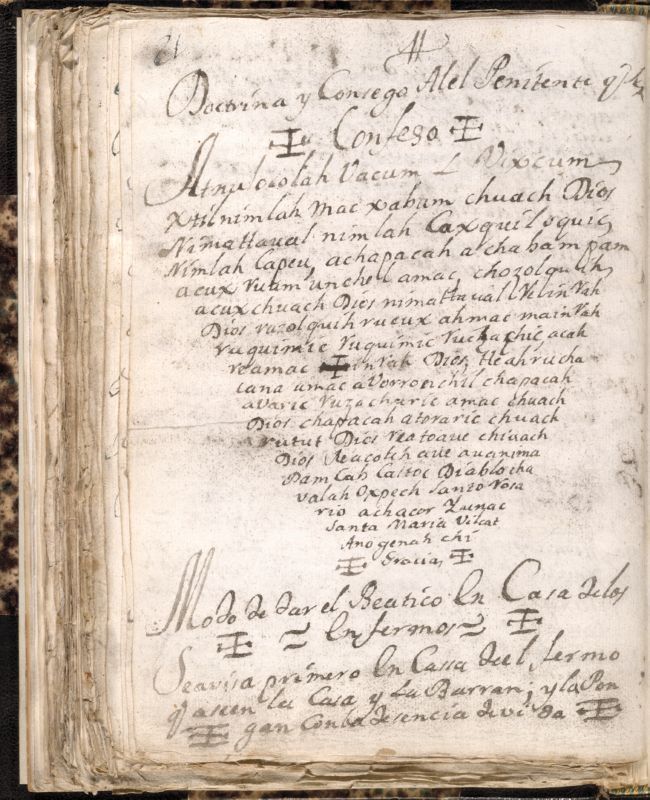 Doctrina y Consego Alel Penitente q̃ Se
Confeso
Atnu ocolah Vacum L Vixcum
xtilnimlah mac xabum chuach Dios
Nimattaual nimlah Caxquil oquic
Nimlah Capeu, achapacah alchabam pam
acux ruam lunchel amac, chozolquih
acux chuach Dios nimattaual Velin Vah
Dios ruzolquih rucux ahmac main Vah
ruquimic Vuquimic Vuchaphic acah
reamac in Vah Dios, tleah rucha
cana umac aVorronchil chapacah
aVaric Vuzachuric amac chuach
Dios chapacah atoraric chuach
rutut Dios reatoque chiuach
Dios Reacolih aue auanima
Pam Cah Castoc Diablo cha
valah Oxpech Santo Rosa
rio achacor Zainac
Santa Maria Viscat
Anogenah chi
Gracia
Modo de dar el Beatico En Casa delos
Enfermos
Seavisa primero En Cassa deel fermo
q̃ aseen la Casa y La Barran; y la Pon
gan Con la desencia devida